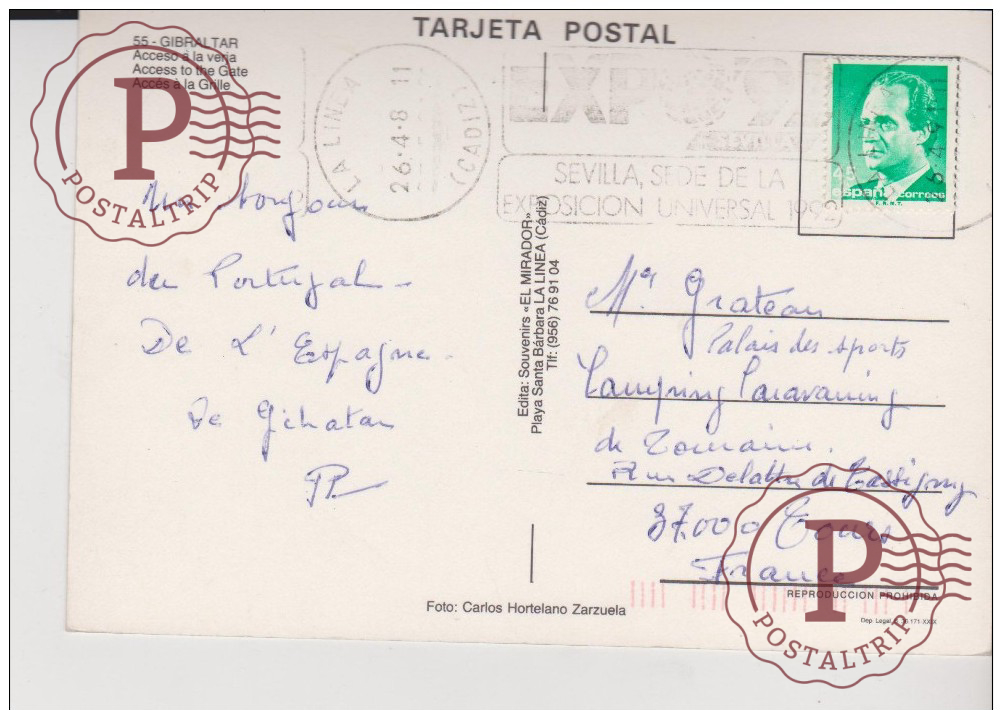 TARJETA POSTAL
55 - GIBRALTAR
Acceso a la verja
Access to the Gate
Accès à la Grille
P
POSTALTRIP
LA LINEA
26·4·8 11
(CADIZ)
EXPO 92
SEVILLA
SEVILLA, SEDE DE LA
EXPOSICION UNIVERSAL 1992
45
españa correos
F.N.M.T.
bonjour
du Portugal -
De l'Espagne -
De Gibratar
PP
Edita: Souvenirs «EL MIRADOR»
Playa Santa Bárbara LA LINEA (Cádiz)
Tlf: (956) 76 91 04
Mr Grateau
Palais des sports
Camping Caravaning
de Touraine.
Rue Delattre de Tassigny
37000 Tours
France
REPRODUCCION PROHIBIDA
Foto: Carlos Hortelano Zarzuela
Dep. Legal 171-XXIX
P
POSTALTRIP